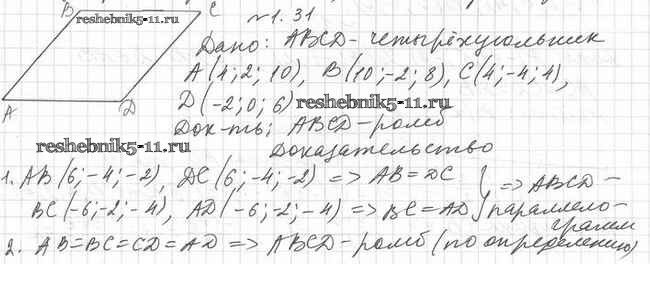 B C
reshebnik5-11.ru
A D
№1.31
Дано: ABCD - четырёхугольник
A(4; 2; 10), B(10; -2; 8), C(4; -4; 4),
D(-2; 0; 6) reshebnik5-11.ru
Док-ть: ABCD - ромб
reshebnik5-11.ru
Доказательство
1. AB(6; -4; -2), DC(6; -4; -2) => AB = DC } => ABCD -
BC(-6; -2; -4), AD(-6; -2; -4) => BC = AD параллело-
грамм
2. AB = BC = CD = AD => ABCD - ромб (по определению)